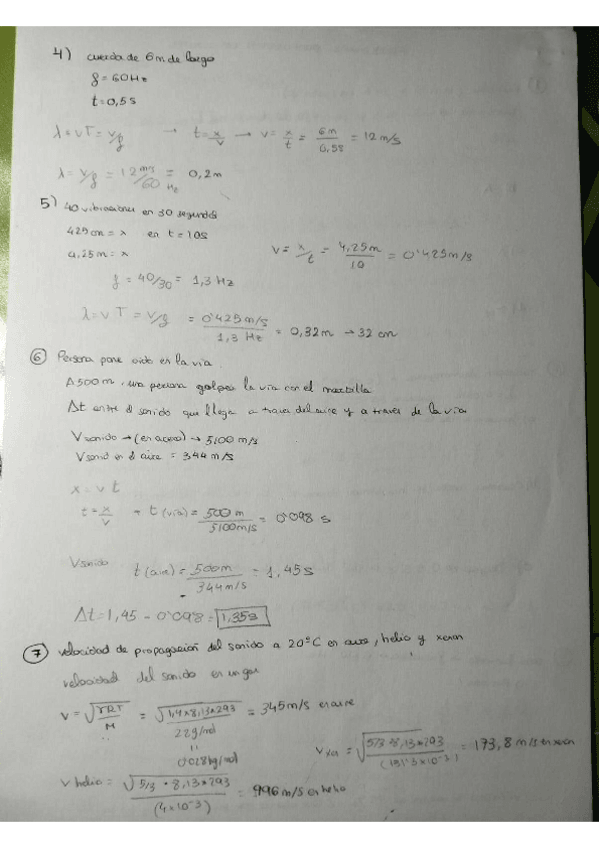 4) cuerda de 6m de largo
f = 60Hz
t = 0,5s
λ = vT = v/f → t = x/v → v = x/t = 6m/0,5s = 12 m/s
λ = v/f = 12 m/s / 60 Hz = 0,2m
5) 40 vibraciones en 30 segundos
425 cm = x en t = 10s
4,25m = x
v = x/t = 4,25m/10 = 0'425m/s
f = 40/30 = 1,3 Hz
λ = vT = v/f = 0'425m/s / 1,3 Hz = 0,32m → 32 cm
6 Persona pone oido en la via
A 500m, una persona golpea la via con el martillo
Δt entre el sonido que llega a traves del aire y a traves de la via
Vsonido → (en acero) → 5100 m/s
Vsonid en el aire = 344 m/s
x = v t
t = x/v → t (via) = 500 m / 5100m/s = 0'098 s
Vsonido
t (aire) = 500m / 344m/s = 1,45s
Δt = 1,45 - 0'098 = 1,35s
7 velocidad de propagación del sonido a 20°C en aire, helio y xenon
velocidad del sonido en un gas
v = √γRT/M = √1,4 x 8,13 x 293 / 28g/mol = 345 m/s en aire
=
0'028kg/mol
V xen = √5/3 · 8,13 * 293 / (131'3 x 10⁻³) = 173,8 m/s en xenon
V helio = √5/3 · 8,13 * 293 / (4 x 10⁻³) = 996 m/s en helio